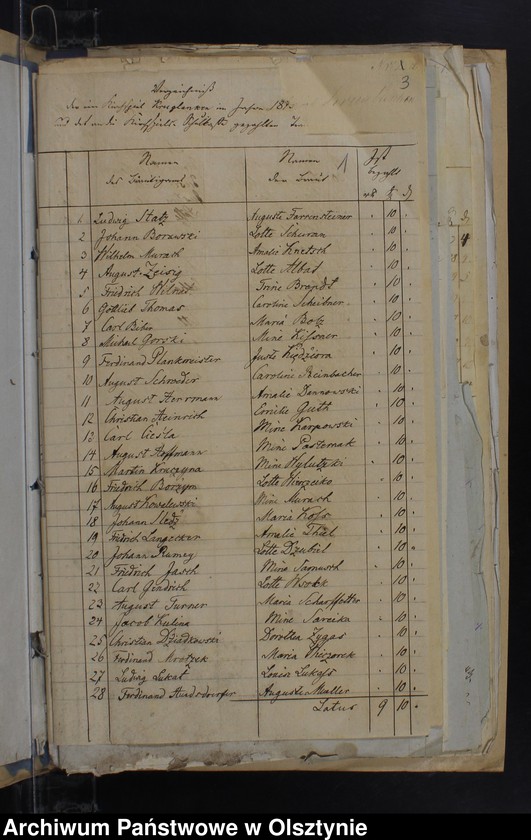 3
Verzeichniß
der im Kirchspiel Kruglanken im Jahre 184
und des an die Kirchspiels gezahlten
Namen
des Bräutigams
Namen
der Braut
1
Ist
bezahlt
1 Ludwig Statz Auguste Farrensteiner 10
2 Johann Borowski Lotte Schwran 10
3 Wilhelm Murach Amalie Knietsch 10
4 August Zeisig Lotte Albat 10
5 Friedrich Wilnat Trine Brandt 10
6 Gottlieb Thomas Caroline Scheibner 10
7 Carl Biber Maria Botz 10
8 Michael Gorski Mine Kißner 10
9 Ferdinand Plankmeister Juste Kędziora 10
10 August Schroeder Caroline Steinbacher 10
11 August Herrmann Amalie Dannowski 10
12 Christian Heinrich Emilie Guth 10
12 Carl Cieśla Mine Karpowski 10
14 August Hoffmann Mine Pasternak 10
15 Martin Kruczyna Mine Wylutzki 10
16 Friedrich Borzym Lotte Wierzeiko 10
17 August Kowalewski Mine Murach 10
18 Johann Sledz Maria Koß 10
19 Friedrich Langecker Amalie Thiel 10
20 Johann Rumey Lotte Dzubiel 10
21 Friedrich Jasch Mine Sarnusch 10
22 Carl Jendrich Lotte Wsokk 10
23 August Turner Maria Scharffetter 10
24 Jacob Kulina Mine Sareika 10
25 Christian Dziadkowski Dorothea Zygas 10
26 Ferdinand Mrotzek Maria Wiezorek 10
27 Ludwig Lukas Louise Lukas 10
28 Ferdinand Hundsdoerfer Auguste Mueller 10
Latus 9 10
Archiwum Państwowe w Olsztynie